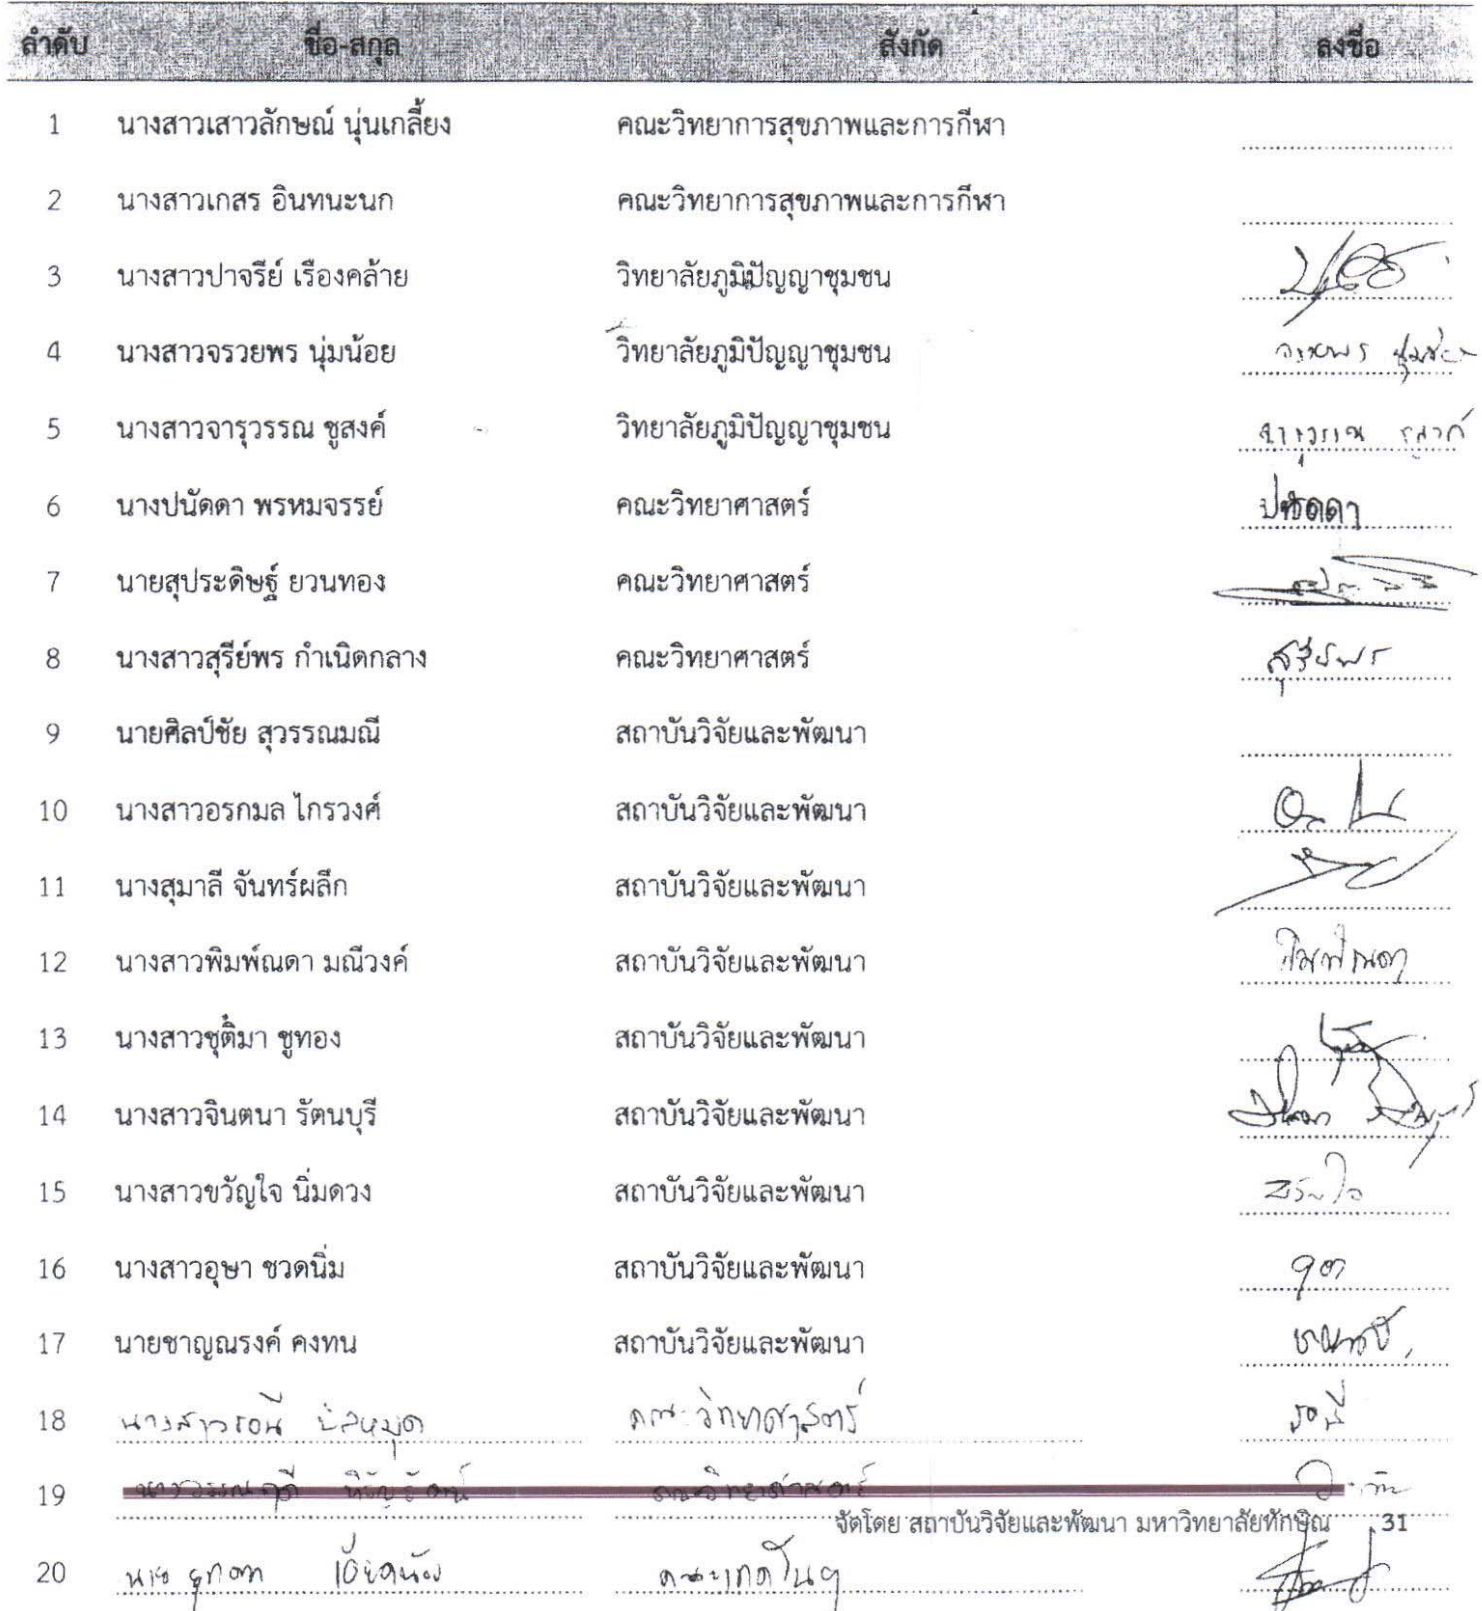 ลำดับ ชื่อ-สกุล สังกัด ลงชื่อ
1 นางสาวเสาวลักษณ์ นุ่นเกลี้ยง คณะวิทยาการสุขภาพและการกีฬา
2 นางสาวเกสร อินทนะนก คณะวิทยาการสุขภาพและการกีฬา
3 นางสาวปาจรีย์ เรืองคล้าย วิทยาลัยภูมิปัญญาชุมชน
4 นางสาวจรวยพร นุ่มน้อย วิทยาลัยภูมิปัญญาชุมชน จรวยพร
5 นางสาวจารุวรรณ ชูสงค์ วิทยาลัยภูมิปัญญาชุมชน จารุวรรณ ชูสงค์
6 นางปนัดดา พรหมจรรย์ คณะวิทยาศาสตร์ ปนัดดา
7 นายสุประดิษฐ์ ยวนทอง คณะวิทยาศาสตร์
8 นางสาวสุรีย์พร กำเนิดกลาง คณะวิทยาศาสตร์ สุรีย์พร
9 นายศิลป์ชัย สุวรรณมณี สถาบันวิจัยและพัฒนา
10 นางสาวอรกมล ไกรวงศ์ สถาบันวิจัยและพัฒนา
11 นางสุมาลี จันทร์ผลึก สถาบันวิจัยและพัฒนา
12 นางสาวพิมพ์ณดา มณีวงค์ สถาบันวิจัยและพัฒนา พิมพ์ณดา
13 นางสาวชุติมา ชูทอง สถาบันวิจัยและพัฒนา
14 นางสาวจินตนา รัตนบุรี สถาบันวิจัยและพัฒนา
15 นางสาวขวัญใจ นิ่มดวง สถาบันวิจัยและพัฒนา ขวัญใจ
16 นางสาวอุษา ชวดนิ่ม สถาบันวิจัยและพัฒนา
17 นายชาญณรงค์ คงทน สถาบันวิจัยและพัฒนา
18 นางสาวรอนี คณะวิทยาศาสตร์ รอนี
19 คณะวิทยาศาสตร์
จัดโดย สถาบันวิจัยและพัฒนา มหาวิทยาลัยทักษิณ 31
20 นาย